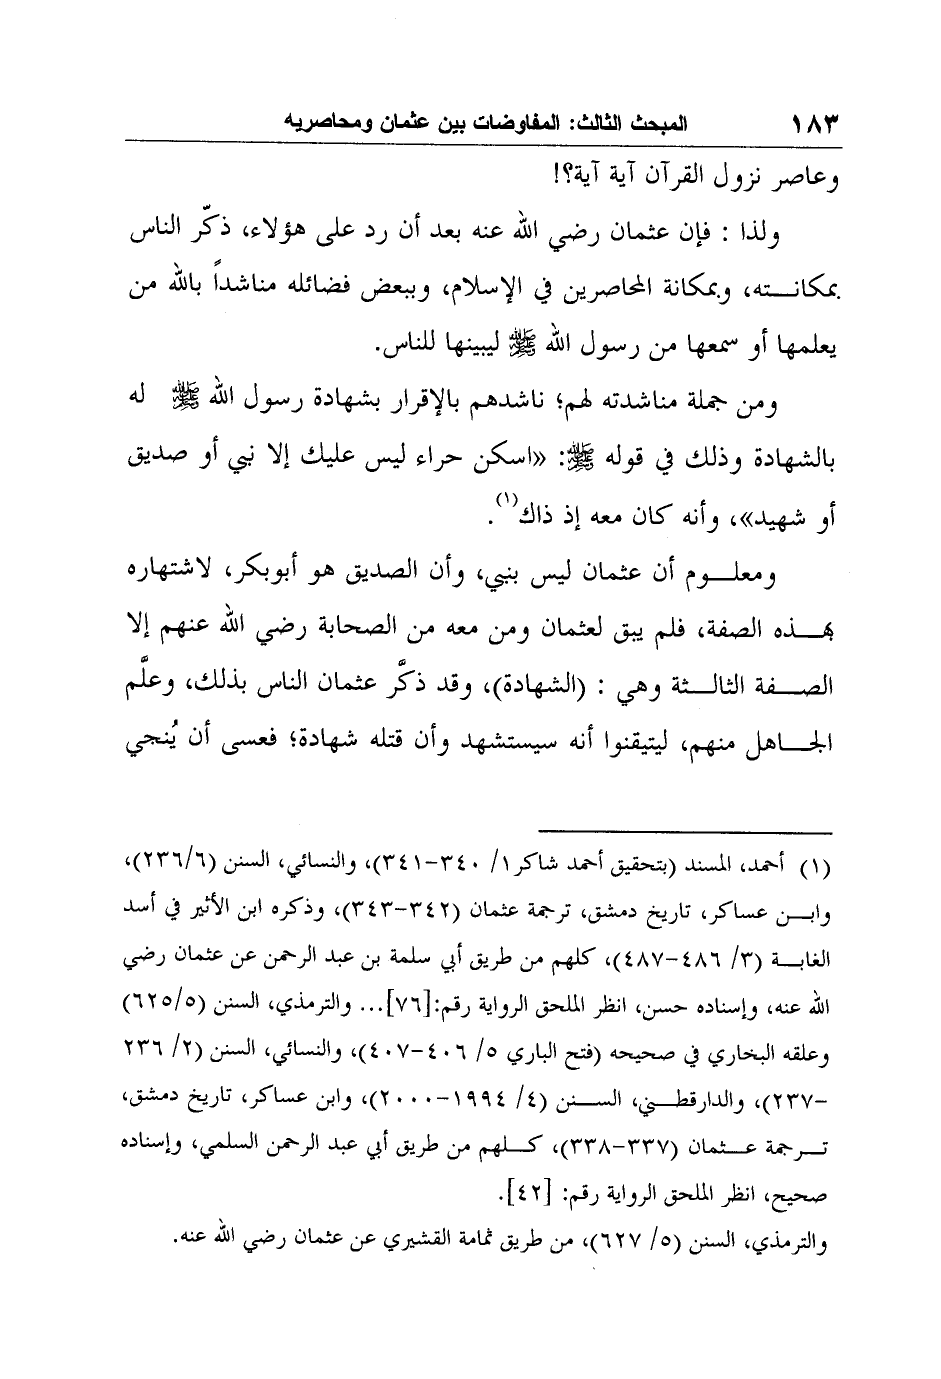 ١٨٣ المبحث الثالث: المفاوضات بين عثمان ومحاصريه
وعاصر نزول القرآن آية آية؟!
ولذا : فإن عثمان رضي الله عنه بعد أن رد على هؤلاء، ذكّر الناس
بمكانـــته، وبمكانة المحاصرين في الإسلام، وببعض فضائله مناشداً بالله من
يعلمها أو سمعها من رسول الله ﷺ ليبينها للناس.
ومن جملة مناشدته لهم؛ ناشدهم بالإقرار بشهادة رسول الله ﷺ له
بالشهادة وذلك في قوله ﷺ: «اسكن حراء ليس عليك إلا نبي أو صديق
أو شهيد»، وأنه كان معه إذ ذاك(١).
ومعلـــوم أن عثمان ليس بنبي، وأن الصديق هو أبوبكر، لاشتهاره
بهـــذه الصفة، فلم يبق لعثمان ومن معه من الصحابة رضي الله عنهم إلا
الصـــفة الثالـــثة وهي : (الشهادة)، وقد ذكَّر عثمان الناس بذلك، وعلَّم
الجـــاهل منهم، ليتيقنوا أنه سيستشهد وأن قتله شهادة؛ فعسى أن يُنجي
(١) أحمد، المسند (بتحقيق أحمد شاكر١/ ٣٤٠-٣٤١)، والنسائي، السنن (٢٣٦/٦)،
وابـــن عساكر، تاريخ دمشق، ترجمة عثمان (٣٤٢-٣٤٣)، وذكره ابن الأثير في أسد
الغابـــة (٣/ ٤٨٦-٤٨٧)، كلهم من طريق أبي سلمة بن عبد الرحمن عن عثمان رضي
الله عنه، وإسناده حسن، انظر الملحق الرواية رقم:[٧٦]... والترمذي، السنن (٦٢٥/٥)
وعلقه البخاري في صحيحه (فتح الباري ٥/ ٤٠٦-٤٠٧)، والنسائي، السنن (٢/ ٢٣٦
-٢٣٧)، والدارقطـــني، الســـنن (٤/ ١٩٩٤-٢٠٠٠)، وابن عساكر، تاريخ دمشق،
تـــرجمة عـــثمان (٣٣٧-٣٣٨)، كـــلهم من طريق أبي عبد الرحمن السلمي، وإسناده
صحيح، انظر الملحق الرواية رقم: [٤٢].
والترمذي، السنن (٥/ ٦٢٧)، من طريق ثمامة القشيري عن عثمان رضي الله عنه.